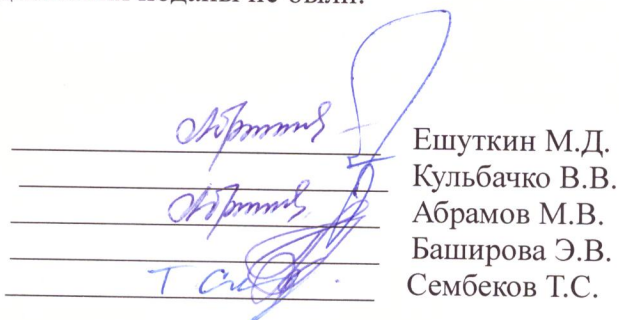 поданы не были.
Ешуткин М.Д.
Кульбачко В.В.
Абрамов М.В.
Баширова Э.В.
Сембеков Т.С.